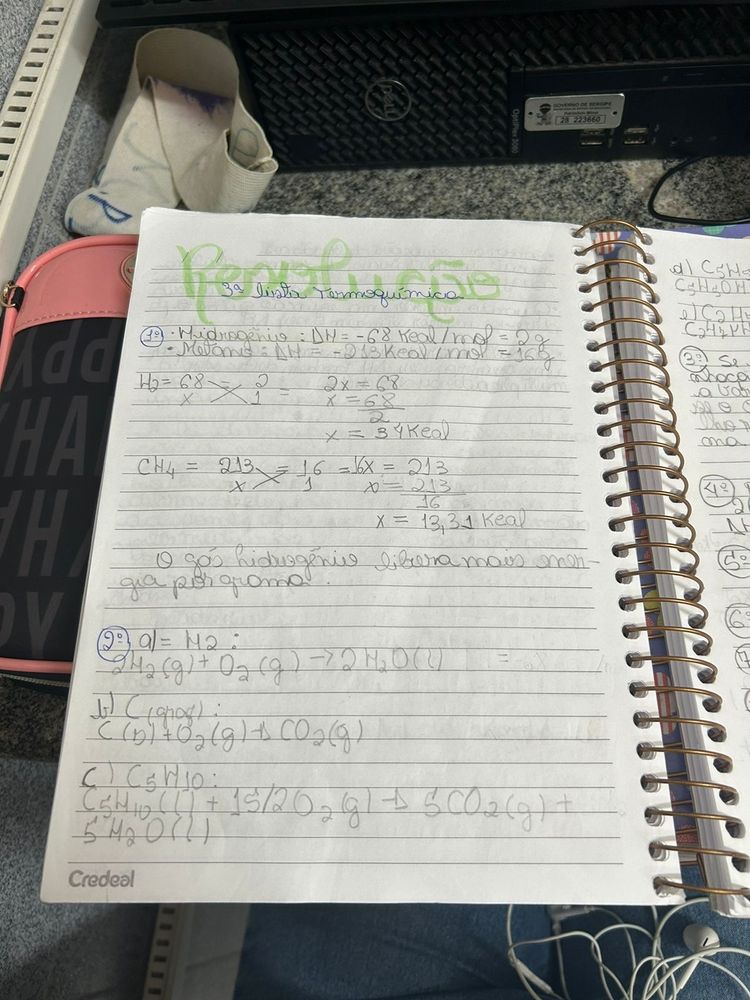 DELL
OptiPlex 3050
GOVERNO DE SERGIPE
28 223660
3ª lista Termoquímica
1º • Hidrogênio: ΔH = -68 Kcal/mol = 2g
• Metano: ΔH = -213 Kcal/mol = 16g
H2 = 68 = 2 2x = 68
x 1 = x = 68
2
x = 34 Kcal
CH4 = 213 = 16 = 16x = 213
x 1 x = 213
16
x = 13,31 Kcal
O gás hidrogênio libera mais ener-
gia por grama.
2º a) = H2:
2H2(g) + O2(g) → 2H2O(l) =
b) C(graf):
C(s) + O2(g) → CO2(g)
c) C5H10:
C5H10(l) + 15/2O2(g) → 5CO2(g) +
5H2O(l)
Credeal
d) C5H
C5H5OH
e) C2H
3º Se
4º
5º
6º